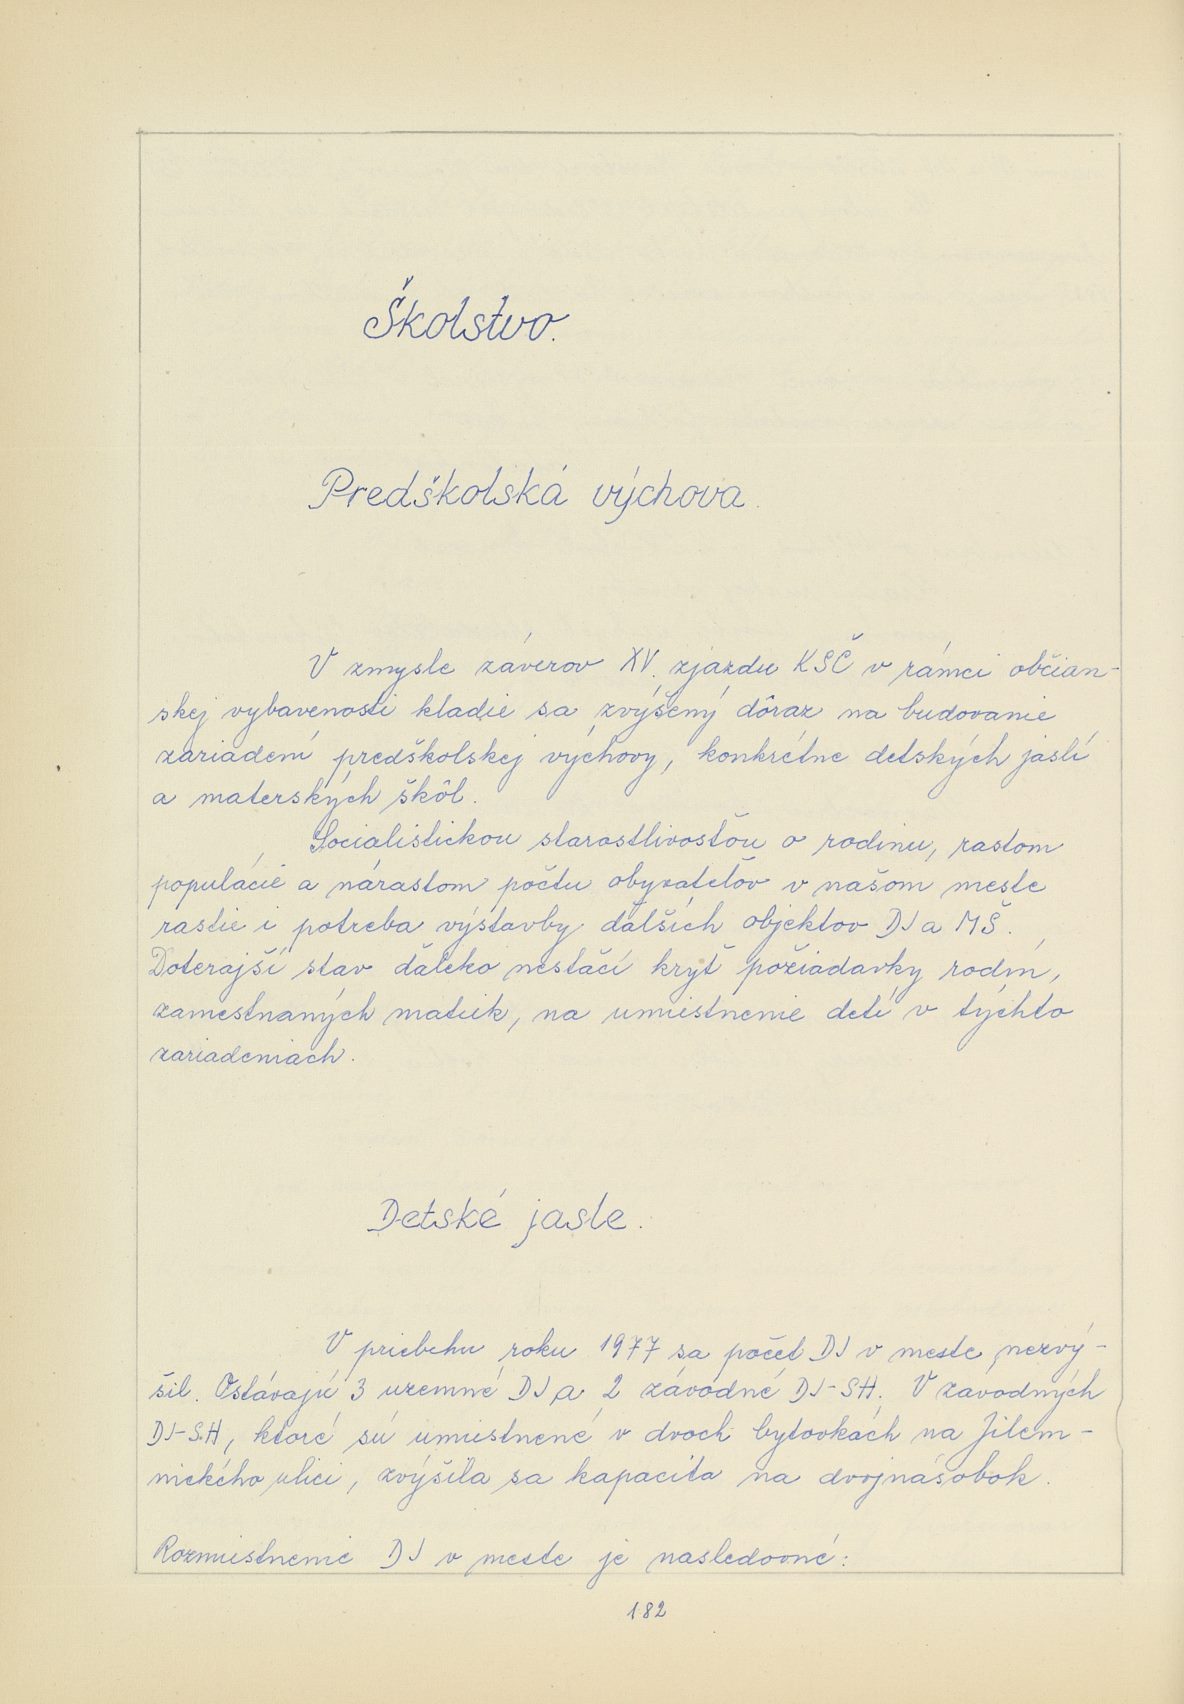 Školstvo.
Predškolská výchova.
V zmysle záverov XV. zjazdu KSČ v rámci občian-
skej vybavenosti kladie sa zvýšený dôraz na budovanie
zariadení predškolskej výchovy, konkrétne detských jaslí
a materských škôl.
Socialistickou starostlivosťou o rodinu, rastom
populácie a nárastom počtu obyvateľov v našom meste
rastie i potreba výstavby ďalších objektov DJ a MŠ.
Doterajší stav ďaleko nestačí kryť požiadavky rodín,
zamestnaných matiek, na umiestnenie detí v týchto
zariadeniach.
Detské jasle.
V priebehu roku 1977 sa počet DJ v meste nezvý-
šil. Ostávajú 3 územné DJ a 2 závodné DJ-SH. V závodných
DJ-SH, ktoré sú umiestnené v dvoch bytovkách na Jilem-
nického ulici, zvýšila sa kapacita na dvojnásobok.
Rozmiestnenie DJ v meste je nasledovné:
182